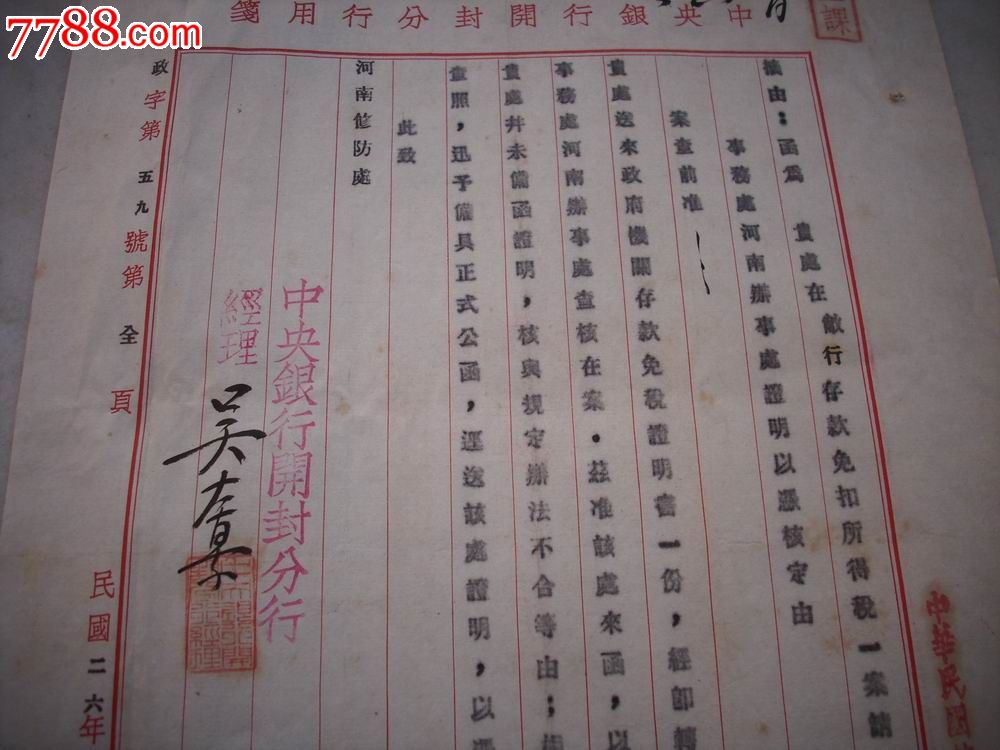 7788.com
中央銀行開封分行用箋
課
摘由：函爲 貴處在敝行存款免扣所得稅一案請
事務處河南辦事處證明以憑核定由
案查前准
貴處送來政府機關存款免稅證明書一份，經即轉
事務處河南辦事處查核在案．茲准該處來函，以
貴處并未備函證明，核與規定辦法不合等由；相
查照，迅予備具正式公函，逕送該處證明，以憑
此致
河南修防處
中央銀行開封分行
經理
政字第五九號第全頁
民國二六年
中華民國